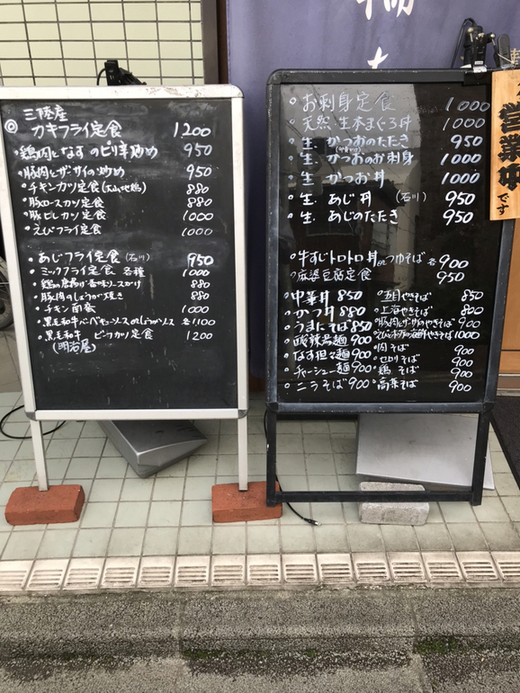 三陸産
◎ カキフライ定食 1200
鶏肉となすのピリ辛炒め 950
豚肉とザーサイの炒め 950
チキンカツ定食(大山地鶏) 880
豚ロースカツ定食 880
豚ヒレカツ定食 1000
えびフライ定食 1000
あじフライ定食(石川) 950
ミックスフライ定食 各種 1000
豚肉のしょうが焼き 880
チキン南蛮 1000
黒毛和牛 ビーフカツ定食 1200
(明治屋)
お刺身定食 1000
天然 生本まぐろ丼 1000
生 かつおのたたき 950
生 かつおのお刺身 950
生 かつお丼 1000
生 あじ丼 (石川) 950
生 あじのたたき 950
牛すじトロトロ丼 つゆそば 各900
麻婆豆腐定食 950
中華丼 850
かつ丼 850
うまにそば 850
酸辣湯麺 900
なす担々麺 900
チャーシュー麺 900
ニラそば 900
五目やきそば 850
上海やきそば 800
豚肉とザーサイのやきそば 900
1000
肉そば 900
900
鶏そば 900
高菜そば 900
営業中です